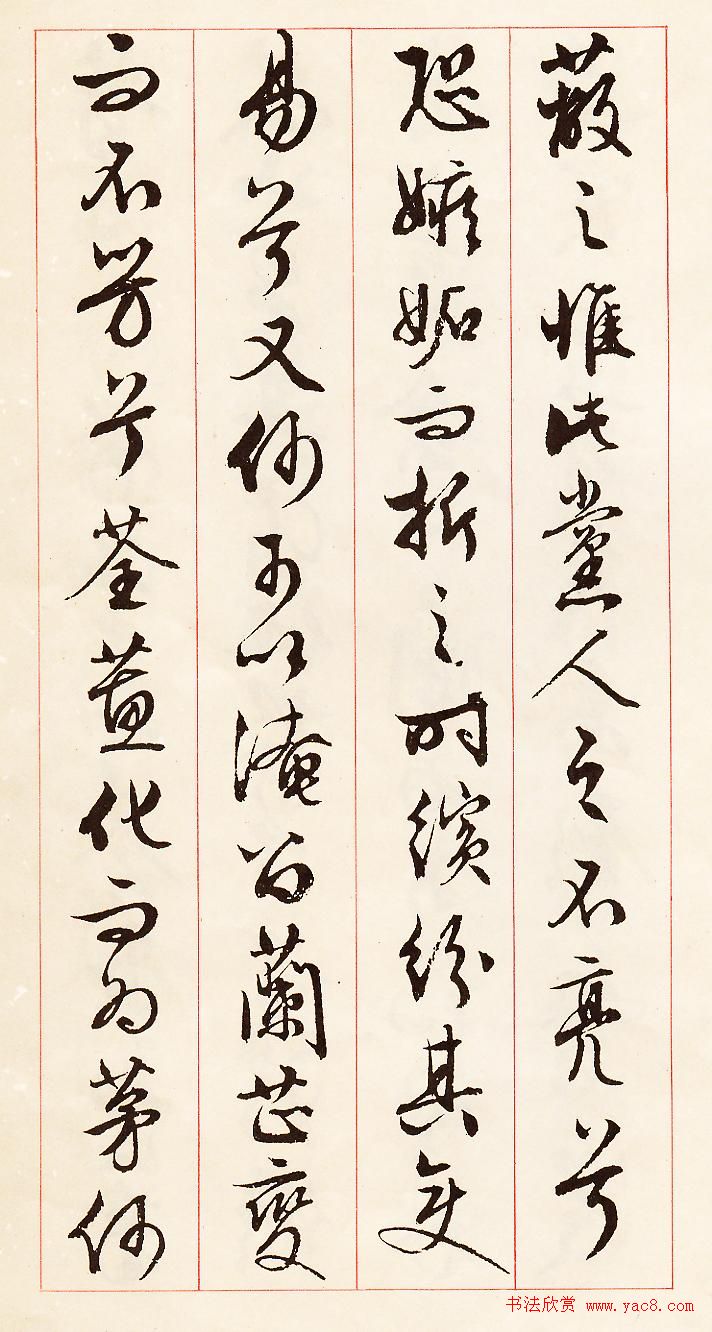 蔽之惟此黨人之不亮兮
恐嫉妬而折之時繽紛其變
易兮又何可以淹留蘭芷變
而不芳兮荃蕙化而為茅何
书法欣赏 www.yac8.com